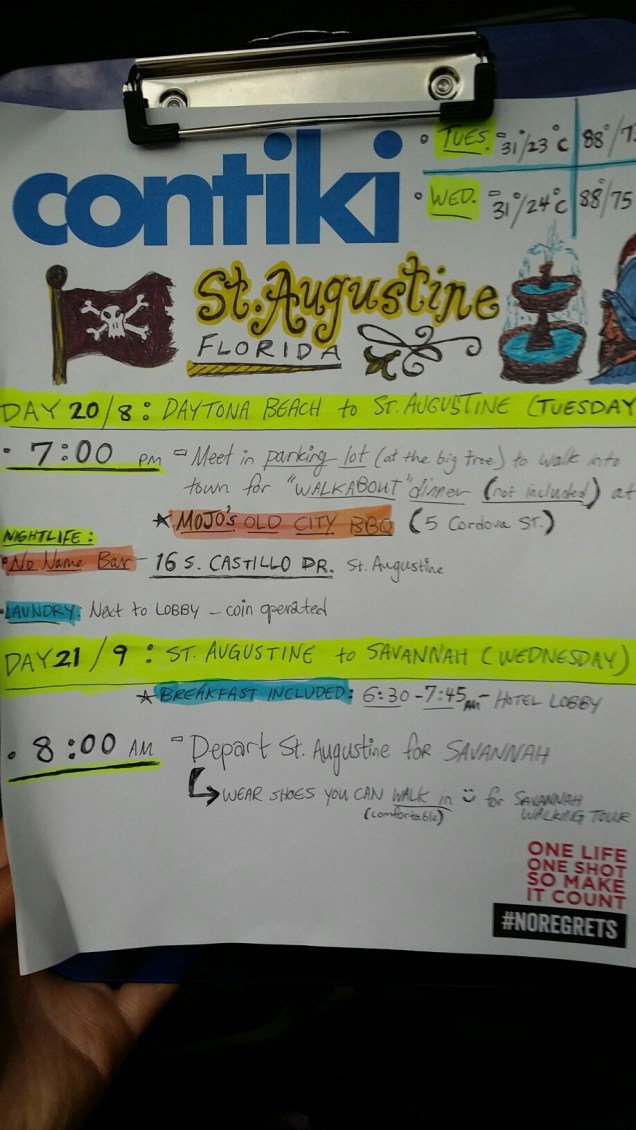 contiki
• TUES. = 31°/23°C 88°/7
• WED. = 31°/24°C 88°/75
St. Augustine
FLORIDA
DAY 20/8: DAYTONA BEACH to ST. AUGUSTINE (TUESDAY
• 7:00 PM = Meet in parking lot (at the big tree) to walk into
town for "WALKABOUT" dinner (not included) at
★ MOJO'S OLD CITY BBQ (5 Cordova ST.)
NIGHTLIFE:
• No Name Bar - 16 S. CASTILLO DR. St. Augustine
• LAUNDRY: Next to LOBBY - coin operated
DAY 21/9: ST. AUGUSTINE to SAVANNAH (WEDNESDAY)
★ BREAKFAST INCLUDED: 6:30-7:45 AM - HOTEL LOBBY
• 8:00 AM = Depart St. Augustine for SAVANNAH
WEAR SHOES YOU CAN WALK in for SAVANNAH
(comfortable) WALKING TOUR
ONE LIFE
ONE SHOT
SO MAKE
IT COUNT
#NOREGRETS